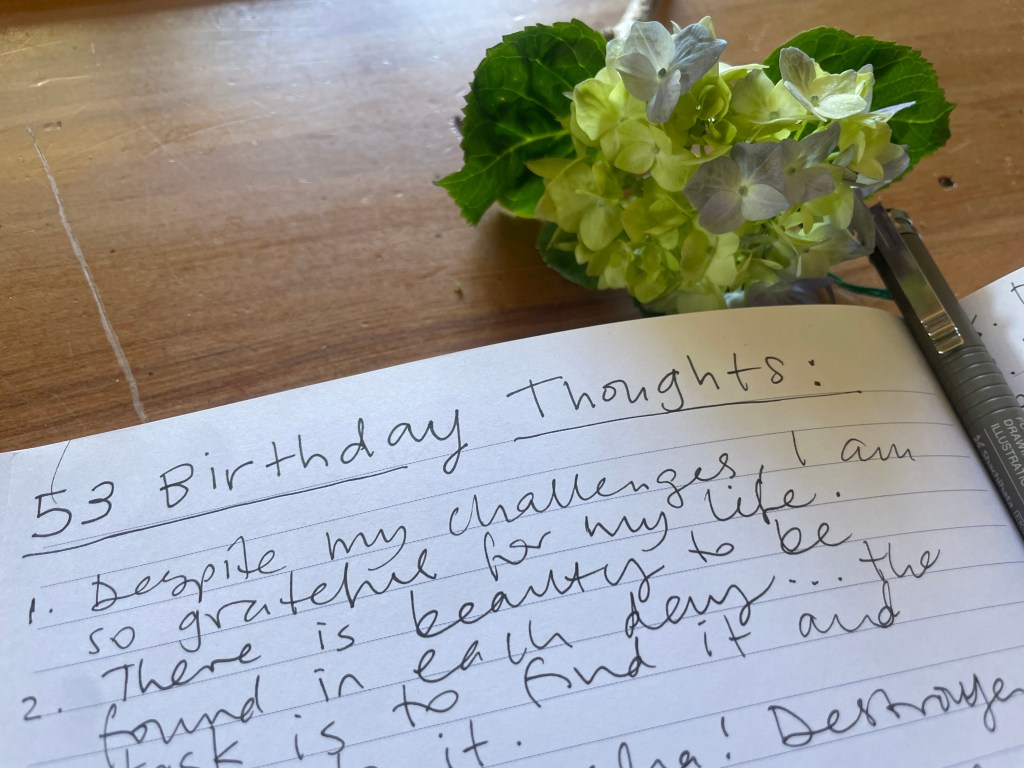 53 Birthday Thoughts:
1. Despite my challenges, I am
so grateful for my life.
2. There is beauty to be
found in each day... the
task is to find it and
it.
! Destroyer
DRAWING
ILLUSTRATION